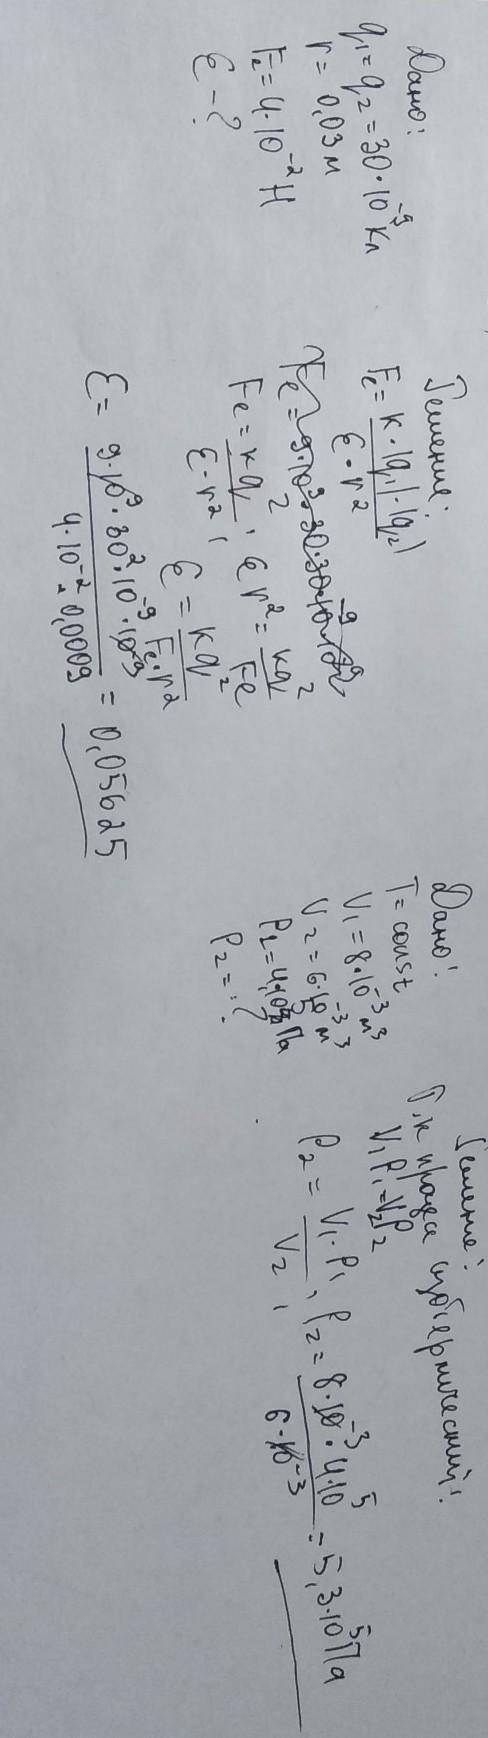 Дано:
q₁ = q₂ = 30·10⁻⁹ Кл
r = 0,03 м
F₂ = 4·10⁻² Н
ε - ?
Решение:
Fε = k·|q₁|·|q₂| / ε·r²
Fε = kq² / ε·r², εr² = kq² / Fε
ε = kq² / Fε·r²
ε = 9·10⁹·30²·10⁻⁹·10⁻⁹ / 4·10⁻²·0,0009 = 0,05625
Дано:
T = const
V₁ = 8·10⁻³ м³
V₂ = 6·10⁻³ м³
P₁ = 4·10⁵ Па
P₂ = ?
Решение:
Т.к процесс изотермический:
V₁P₁ = V₂P₂
P₂ = V₁·P₁ / V₂, P₂ = 8·10⁻³·4·10⁵ / 6·10⁻³ = 5,3·10⁵ Па